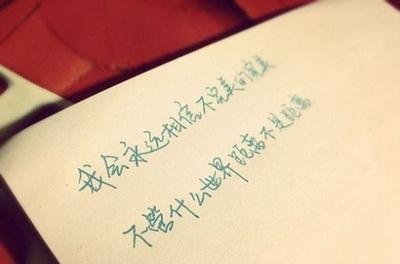 我会永远相信不完美的完美
不管什么世界距离不是距离